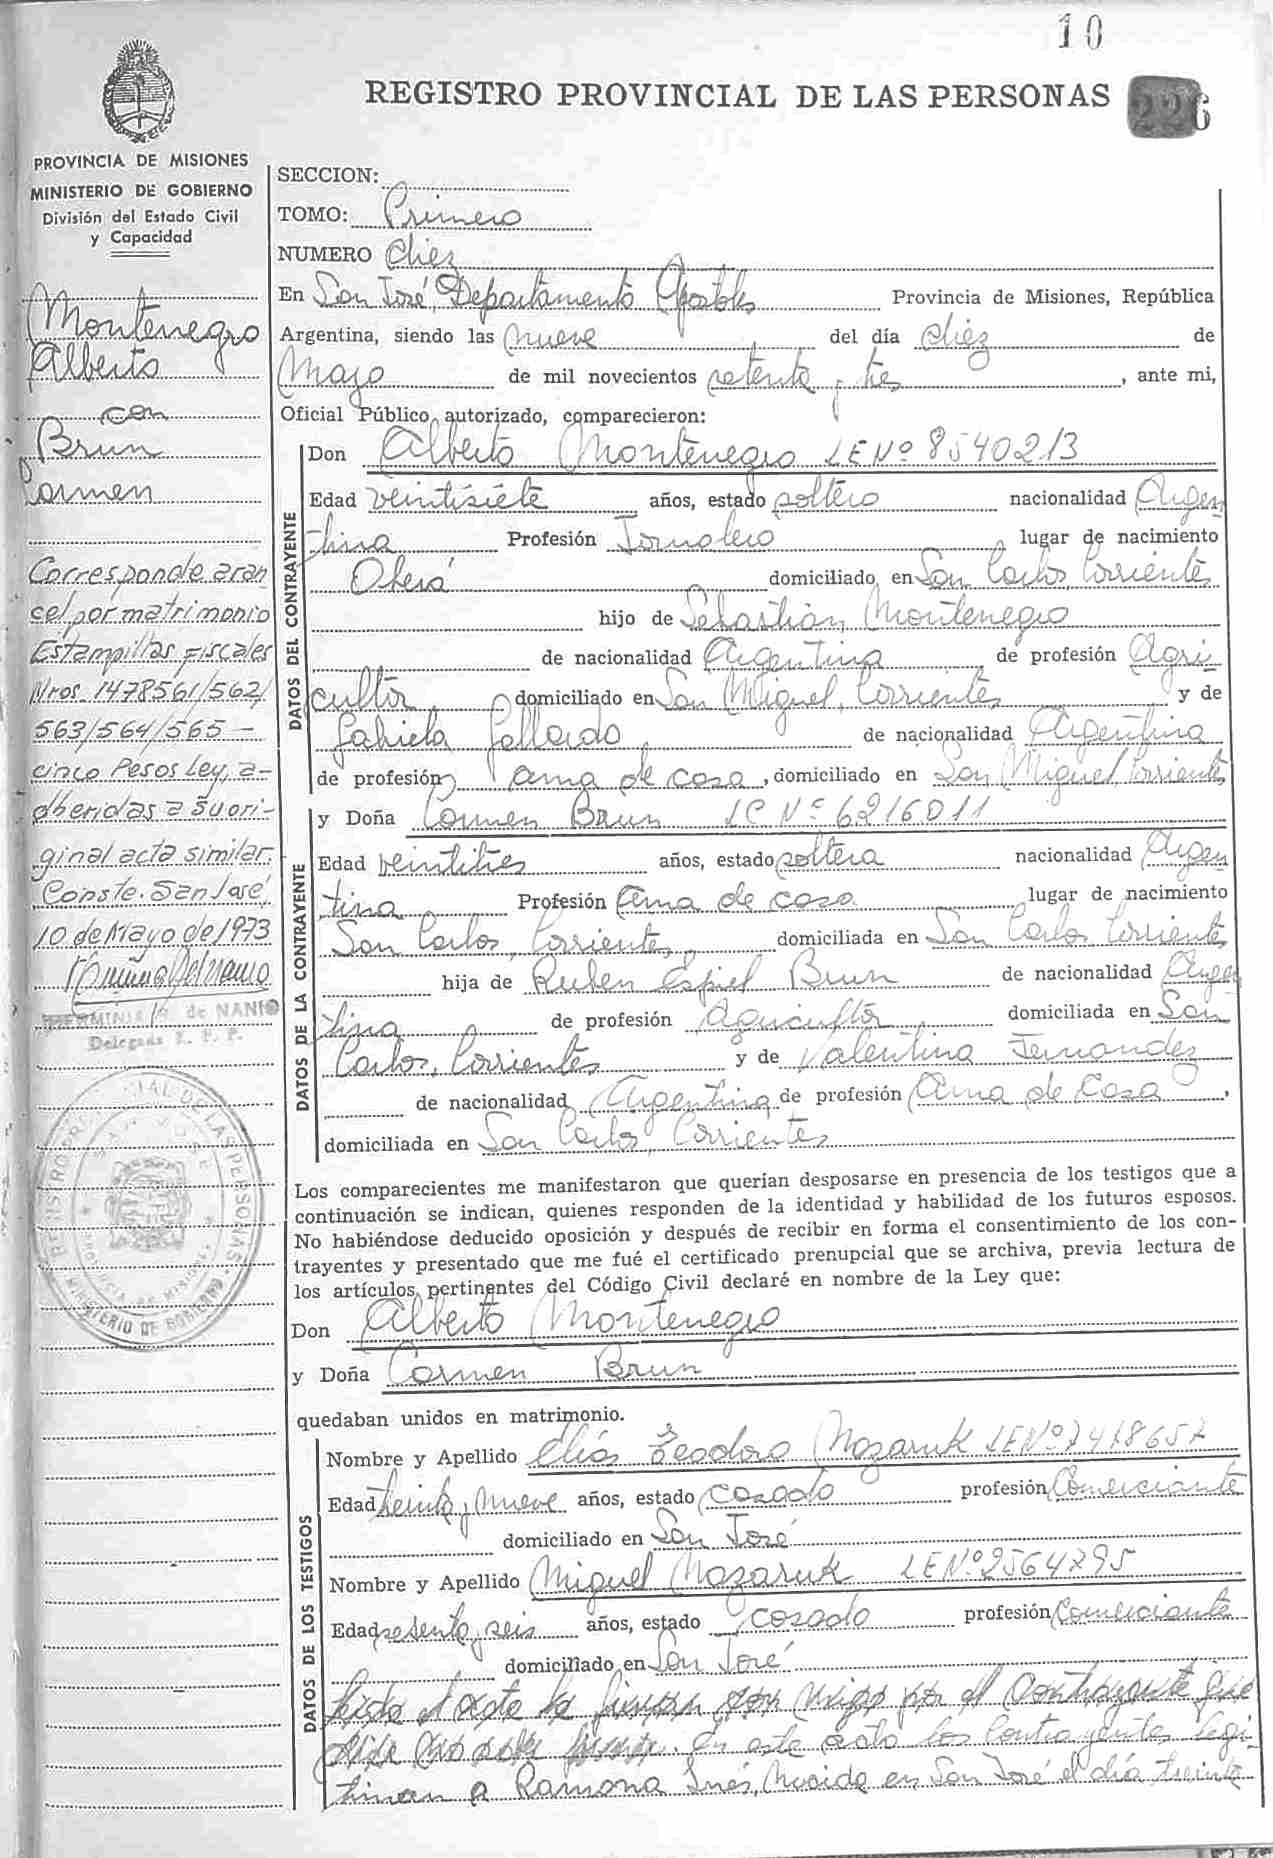 10
REGISTRO PROVINCIAL DE LAS PERSONAS
226
PROVINCIA DE MISIONES
MINISTERIO DE GOBIERNO
División del Estado Civil
y Capacidad
Montenegro
Alberto
con
Brun
Carmen
Corresponde aran
cel por matrimonio
Estampillas Fiscales
Nros. 1478561/562/
563/564/565 —
cinco Pesos Ley, a-
dheridas a su ori-
ginal acta similar.
Conste. San José,
10 de Mayo de 1973
de NANIO
Delegada R. P. P.
REGISTRO PROVINCIAL DE LAS PERSONAS
SAN JOSE
PROVINCIA DE MISIONES
MINISTERIO DE GOBIERNO
SECCION:
TOMO: Primero
NUMERO Diez
En San José, Departamento Apóstoles Provincia de Misiones, República
Argentina, siendo las nueve del día diez de
Mayo de mil novecientos setenta y tres, ante mi,
Oficial Público autorizado, comparecieron:
DATOS DEL CONTRAYENTE
Don Alberto Montenegro LE Nº 8540213
Edad veintisiete años, estado soltero nacionalidad Argen
tina Profesión Jornalero lugar de nacimiento
Oberá domiciliado en San Carlos, Corrientes
hijo de Sebastián Montenegro
de nacionalidad Argentina de profesión Agri
cultor domiciliado en San Miguel, Corrientes y de
Gabriela Gallardo de nacionalidad Argentina
de profesión ama de casa, domiciliado en San Miguel, Corrientes
DATOS DE LA CONTRAYENTE
y Doña Carmen Brun LC Nº 6216011
Edad veintitres años, estado soltera nacionalidad Argen
tina Profesión Ama de casa lugar de nacimiento
San Carlos, Corrientes, domiciliada en San Carlos Corrientes
hija de Ruben Espiel Brun de nacionalidad Argen
tina de profesión Agricultor domiciliada en San
Carlos, Corrientes y de Valentina Fernandez
de nacionalidad Argentina de profesión Ama de Casa,
domiciliada en San Carlos, Corrientes
Los comparecientes me manifestaron que querían desposarse en presencia de los testigos que a
continuación se indican, quienes responden de la identidad y habilidad de los futuros esposos.
No habiéndose deducido oposición y después de recibir en forma el consentimiento de los con-
trayentes y presentado que me fué el certificado prenupcial que se archiva, previa lectura de
los artículos pertinentes del Código Civil declaré en nombre de la Ley que:
Don Alberto Montenegro
y Doña Carmen Brun
quedaban unidos en matrimonio.
DATOS DE LOS TESTIGOS
Nombre y Apellido Elías Teodoro Mazaruk LE Nº 7478657
Edad treinta y nueve años, estado casado profesión Comerciante
domiciliado en San José
Nombre y Apellido Miguel Mazaruk LE Nº 2564795
Edad sesenta y seis años, estado casado profesión Comerciante
domiciliado en San José
Leida el acta la firman con migo por el Contrayente que
dice no sabe firmar. En este acto los Contrayentes legi-
timan a Ramona Inés, nacida en San José el día treinta